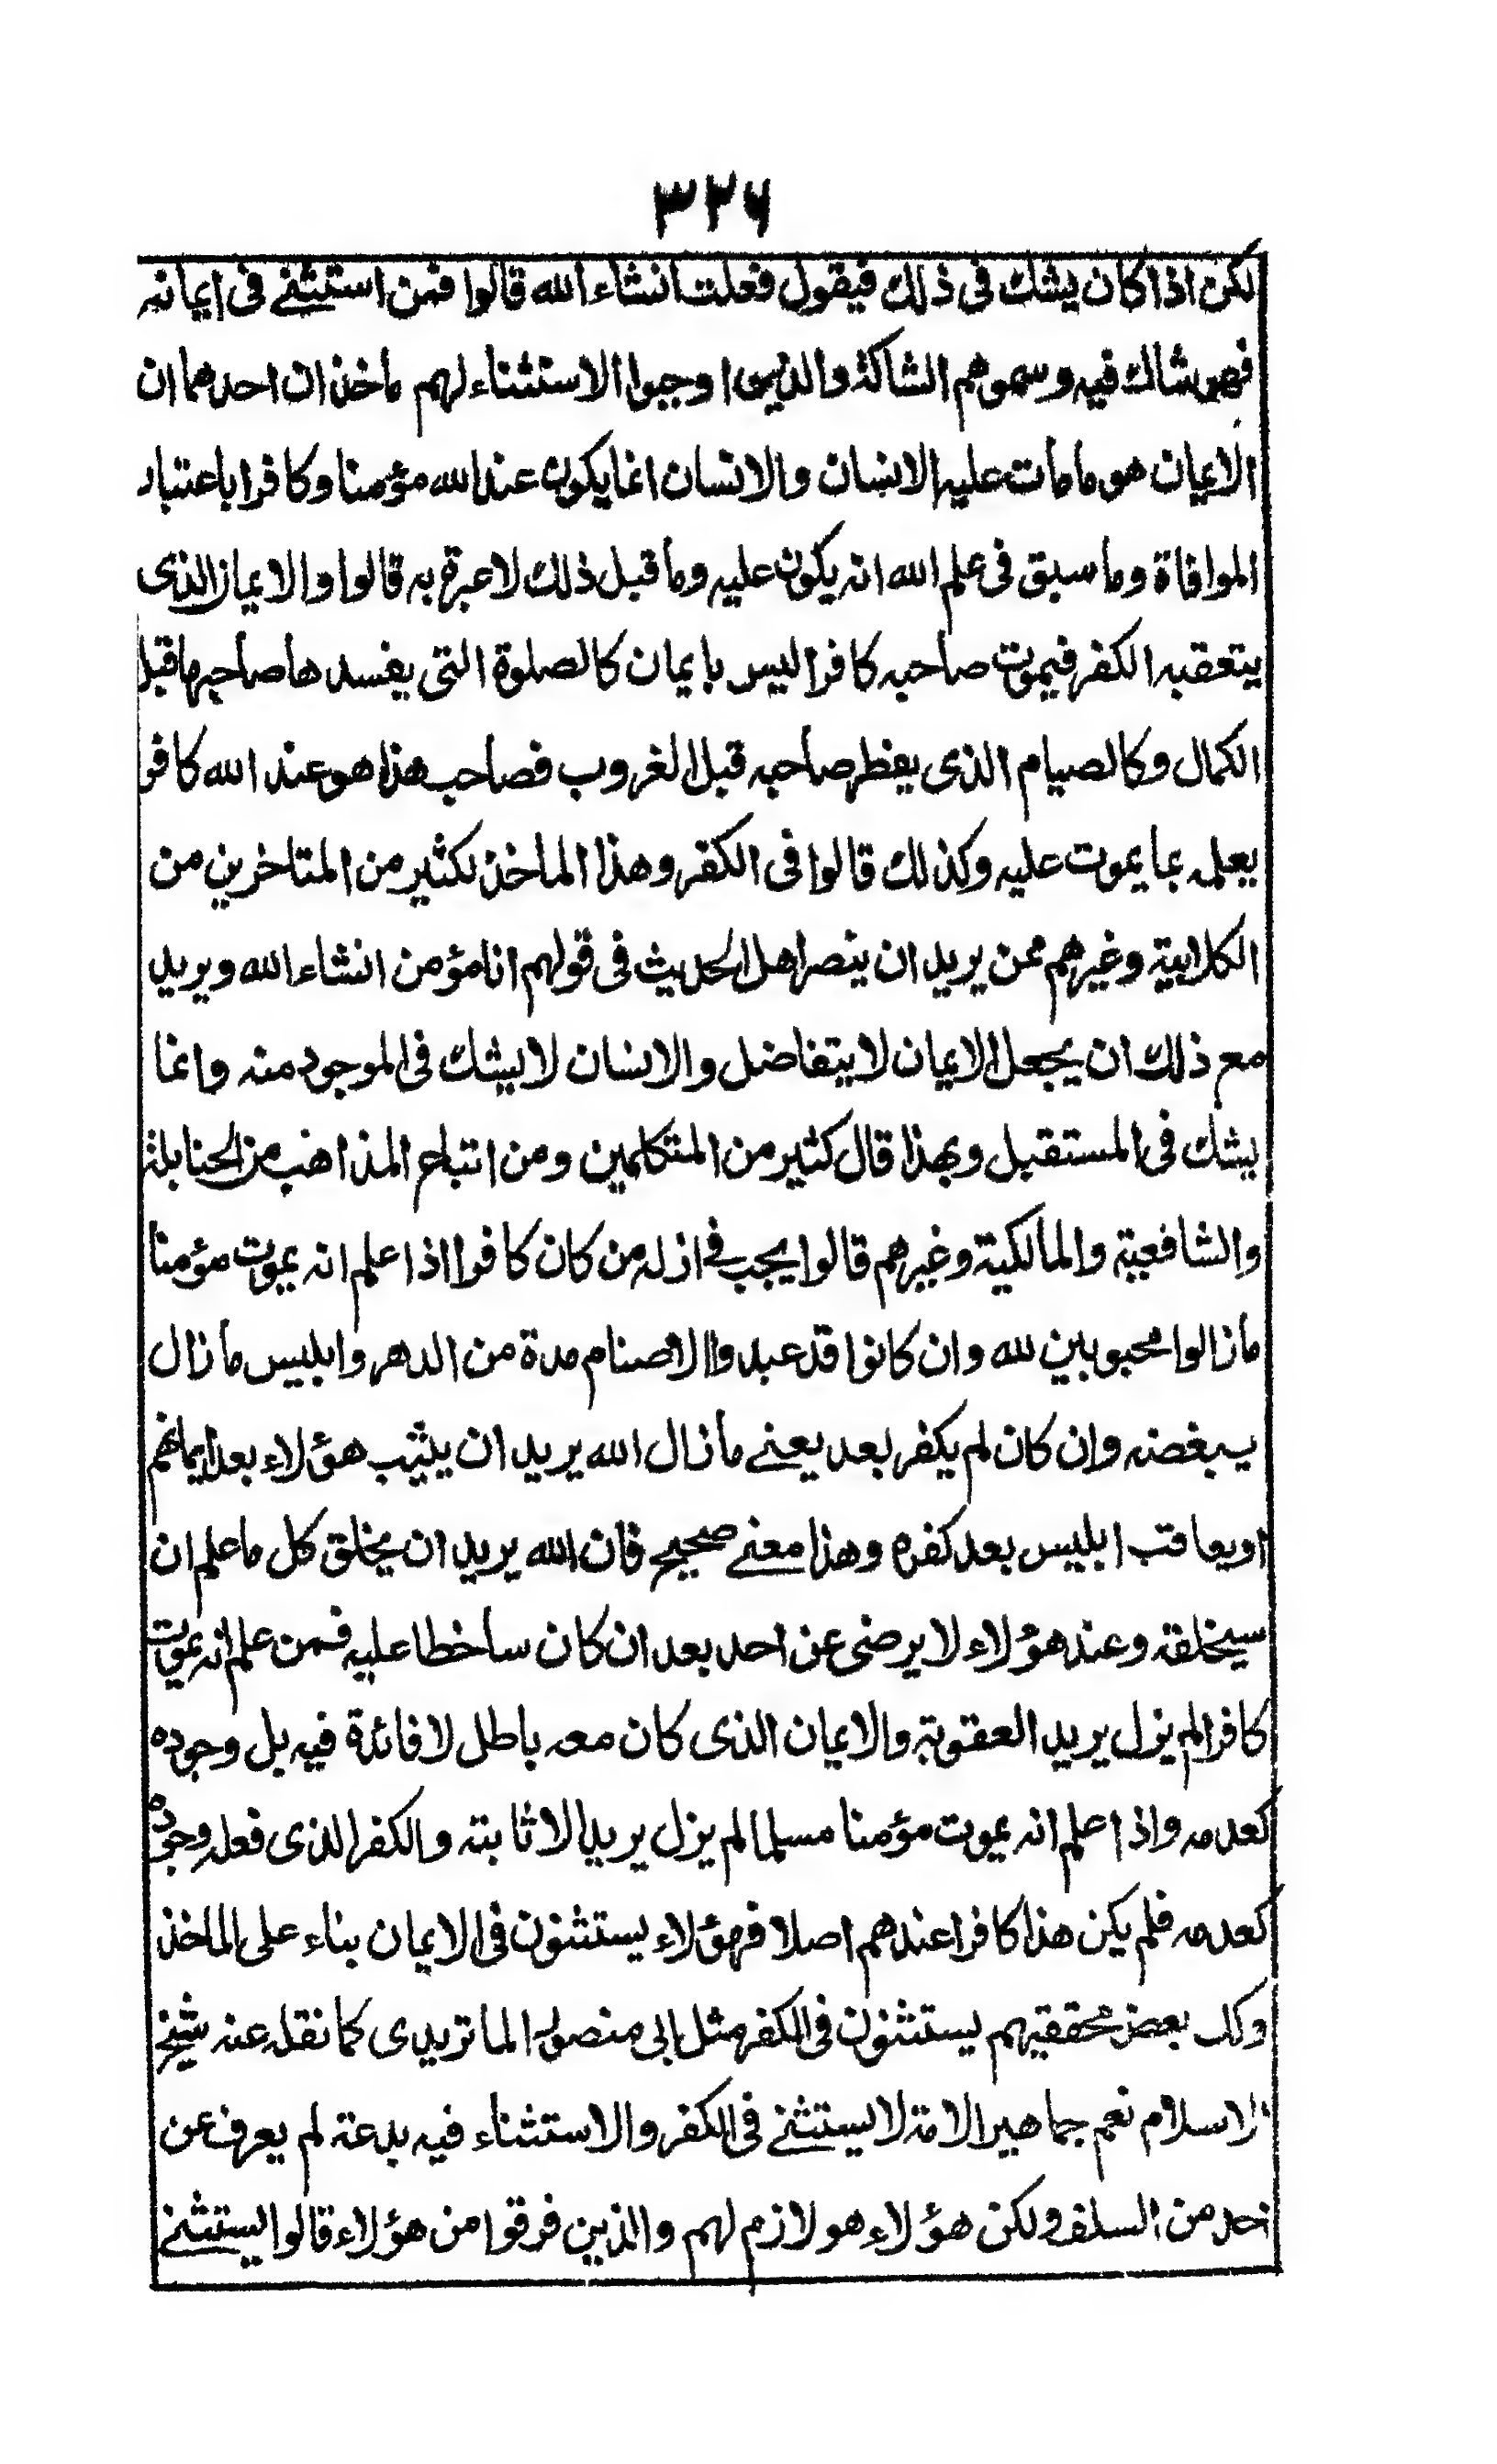 ٣٢٦
لكن اذا كان يشك فى ذلك فيقول فعلت انشاء الله قالوا فمن استثنے فى ايمانه
فهو شاك فيه وسموهم الشاكة والذين اوجبوا الاستثناء لهم مأخذان احدهما ان
الايمان هو ما مات عليه الانسان والانسان انما يكون عند الله مؤمنا وكافرا باعتبار
الموافاة وما سبق فى علم الله انه يكون عليه وما قبل ذلك لا عبرة به قالوا والايمان الذى
يتعقبه الكفر فيموت صاحبه كافرا ليس بايمان كالصلوة التى يفسدها صاحبها قبل
الكمال وكالصيام الذى يفطر صاحبه قبل الغروب فصاحب هذا هو عند الله كافر
يعلمه بما يموت عليه وكذلك قالوا فى الكفر وهذا المأخذ لكثير من المتاخرين من
الكلابية وغيرهم ممن يريد ان ينصر اهل الحديث فى قولهم انا مؤمن انشاء الله ويريد
مع ذلك ان يجعل الايمان لا يتفاضل والانسان لا يشك فى الموجود منه وانما
يشك فى المستقبل وبهذا قال كثير من المتكلمين ومن اتباع المذاهب من الحنابلة
والشافعية والمالكية وغيرهم قالوا يجب فے ازله من كان كافرا اذا علم انه يموت مؤمنا
ما زالوا محبوبين لله وان كانوا قد عبدوا الاصنام مدة من الدهر وابليس ما زال
يبغضه وان كان لم يكفر بعد يعنے ما زال الله يريد ان يثيب هؤلاء بعد ايمانهم
او يعاقب ابليس بعد كفره وهذا معنے صحيح فان الله يريد ان يخلق كل ما علم ان
سيخلقه وعند هؤلاء لا يرضى عن احد بعد ان كان ساخطا عليه فمن علم انه يموت
كافرا لم يزل يريد العقوبة والايمان الذى كان معه باطل لا فائدة فيه بل وجوده
كعدمه واذا علم انه يموت مؤمنا مسلما لم يزل يريد الاثابته والكفر الذى فعله وجوده
كعدمه فلم يكن هذا كافرا عندهم اصلا فهؤلاء يستثنون فى الايمان بناء على الماخذ
وكك بعض محققيهم يستثنون فى الكفر مثل ابى منصور الماتريدى كما نقله عنه شيخ
الاسلام نعم جماهير الامة لا يستثنے فى الكفر والاستثناء فيه بدعة لم يعرف عن
احد من السلف ولكن هؤلاء هو لازم لهم والذين فرقوا من هؤلاء قالوا يستثنے